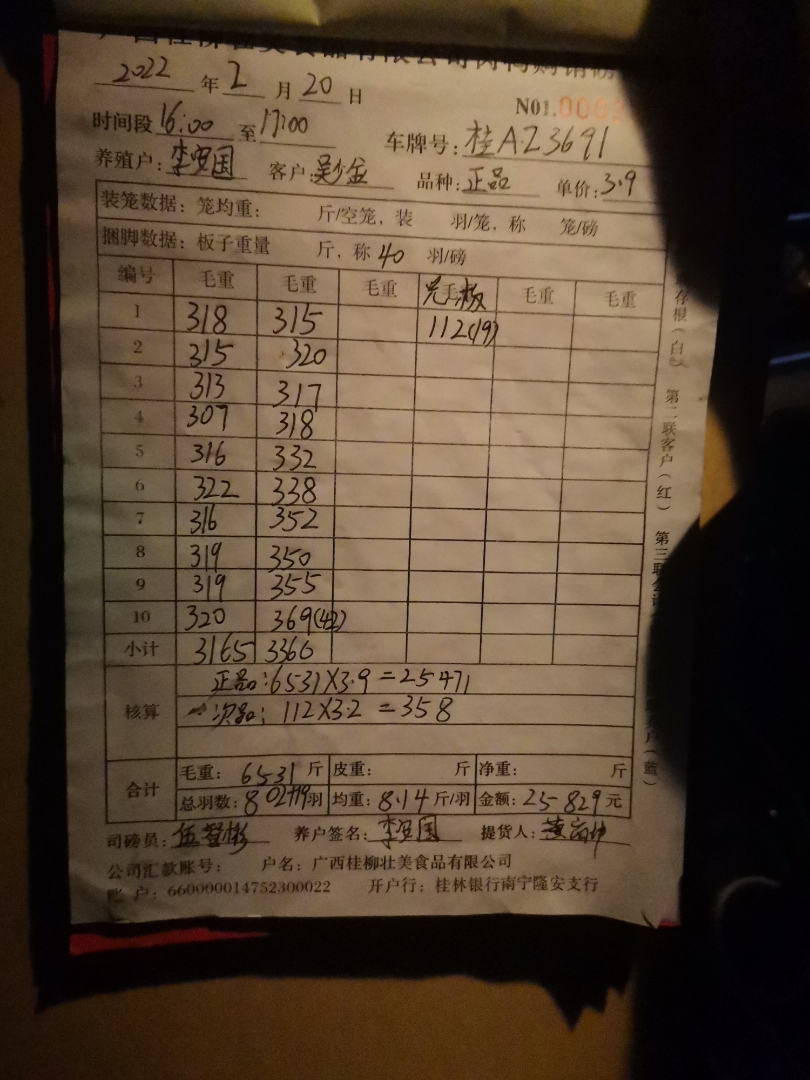 广西桂柳壮美食品有限公司肉鸭购销磅
2022 年 2 月 20 日
N01.000
时间段 16:00 至 17:00 车牌号: 桂AZ3691
养殖户: 客户: 品种: 正品 单价: 3.9
装笼数据: 笼均重: 斤/空笼, 装 羽/笼, 称 笼/磅
捆脚数据: 板子重量 斤, 称 40 羽/磅
编号 毛重 毛重 毛重 毛重 毛重
1 318 315 112(19)
2 315 320
3 313 317
4 307 318
5 316 332
6 322 338
7 316 352
8 319 350
9 319 355
10 320 369(42)
小计 3165 3366
核算 正品: 6531X3.9=25471
次品: 112X3.2=358
合计 毛重: 6531 斤 皮重: 斤 净重: 斤
总羽数: 802+19 羽 均重: 8.14 斤/羽 金额: 25829 元
司磅员: 养户签名: 提货人:
公司汇款账号: 户名: 广西桂柳壮美食品有限公司
账 户: 660000014752300022 开户行: 桂林银行南宁隆安支行
存根(白) 第二联客户(红) 第三联
户(蓝)